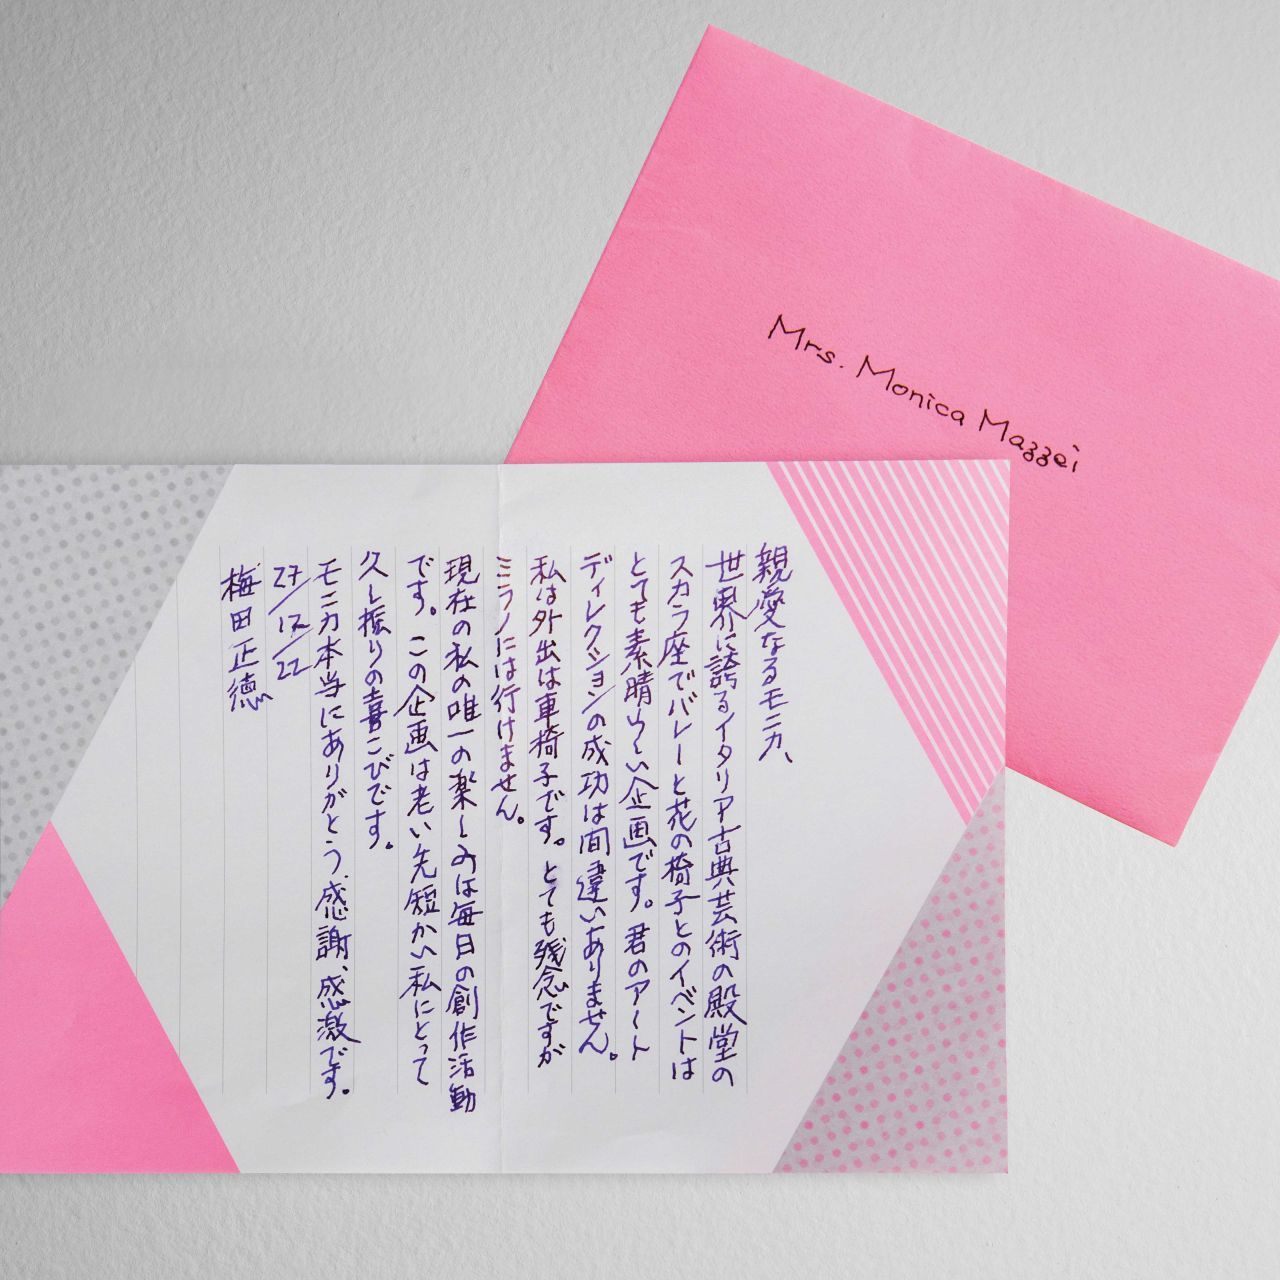 Mrs. Monica Mazzei
親愛なるモニカ、
世界に誇るイタリア古典芸術の殿堂の
スカラ座でバレーと花の椅子とのイベントは
とても素晴らしい企画です。君のアート
ディレクションの成功は間違いありません。
私は外出は車椅子です。とても残念ですが
ミラノには行けません。
現在の私の唯一の楽しみは毎日の創作活動
です。この企画は老い先短かい私にとって
久し振りの喜こびです。
モニカ本当にありがとう、感謝、感激です。
27/12/22
梅田正徳